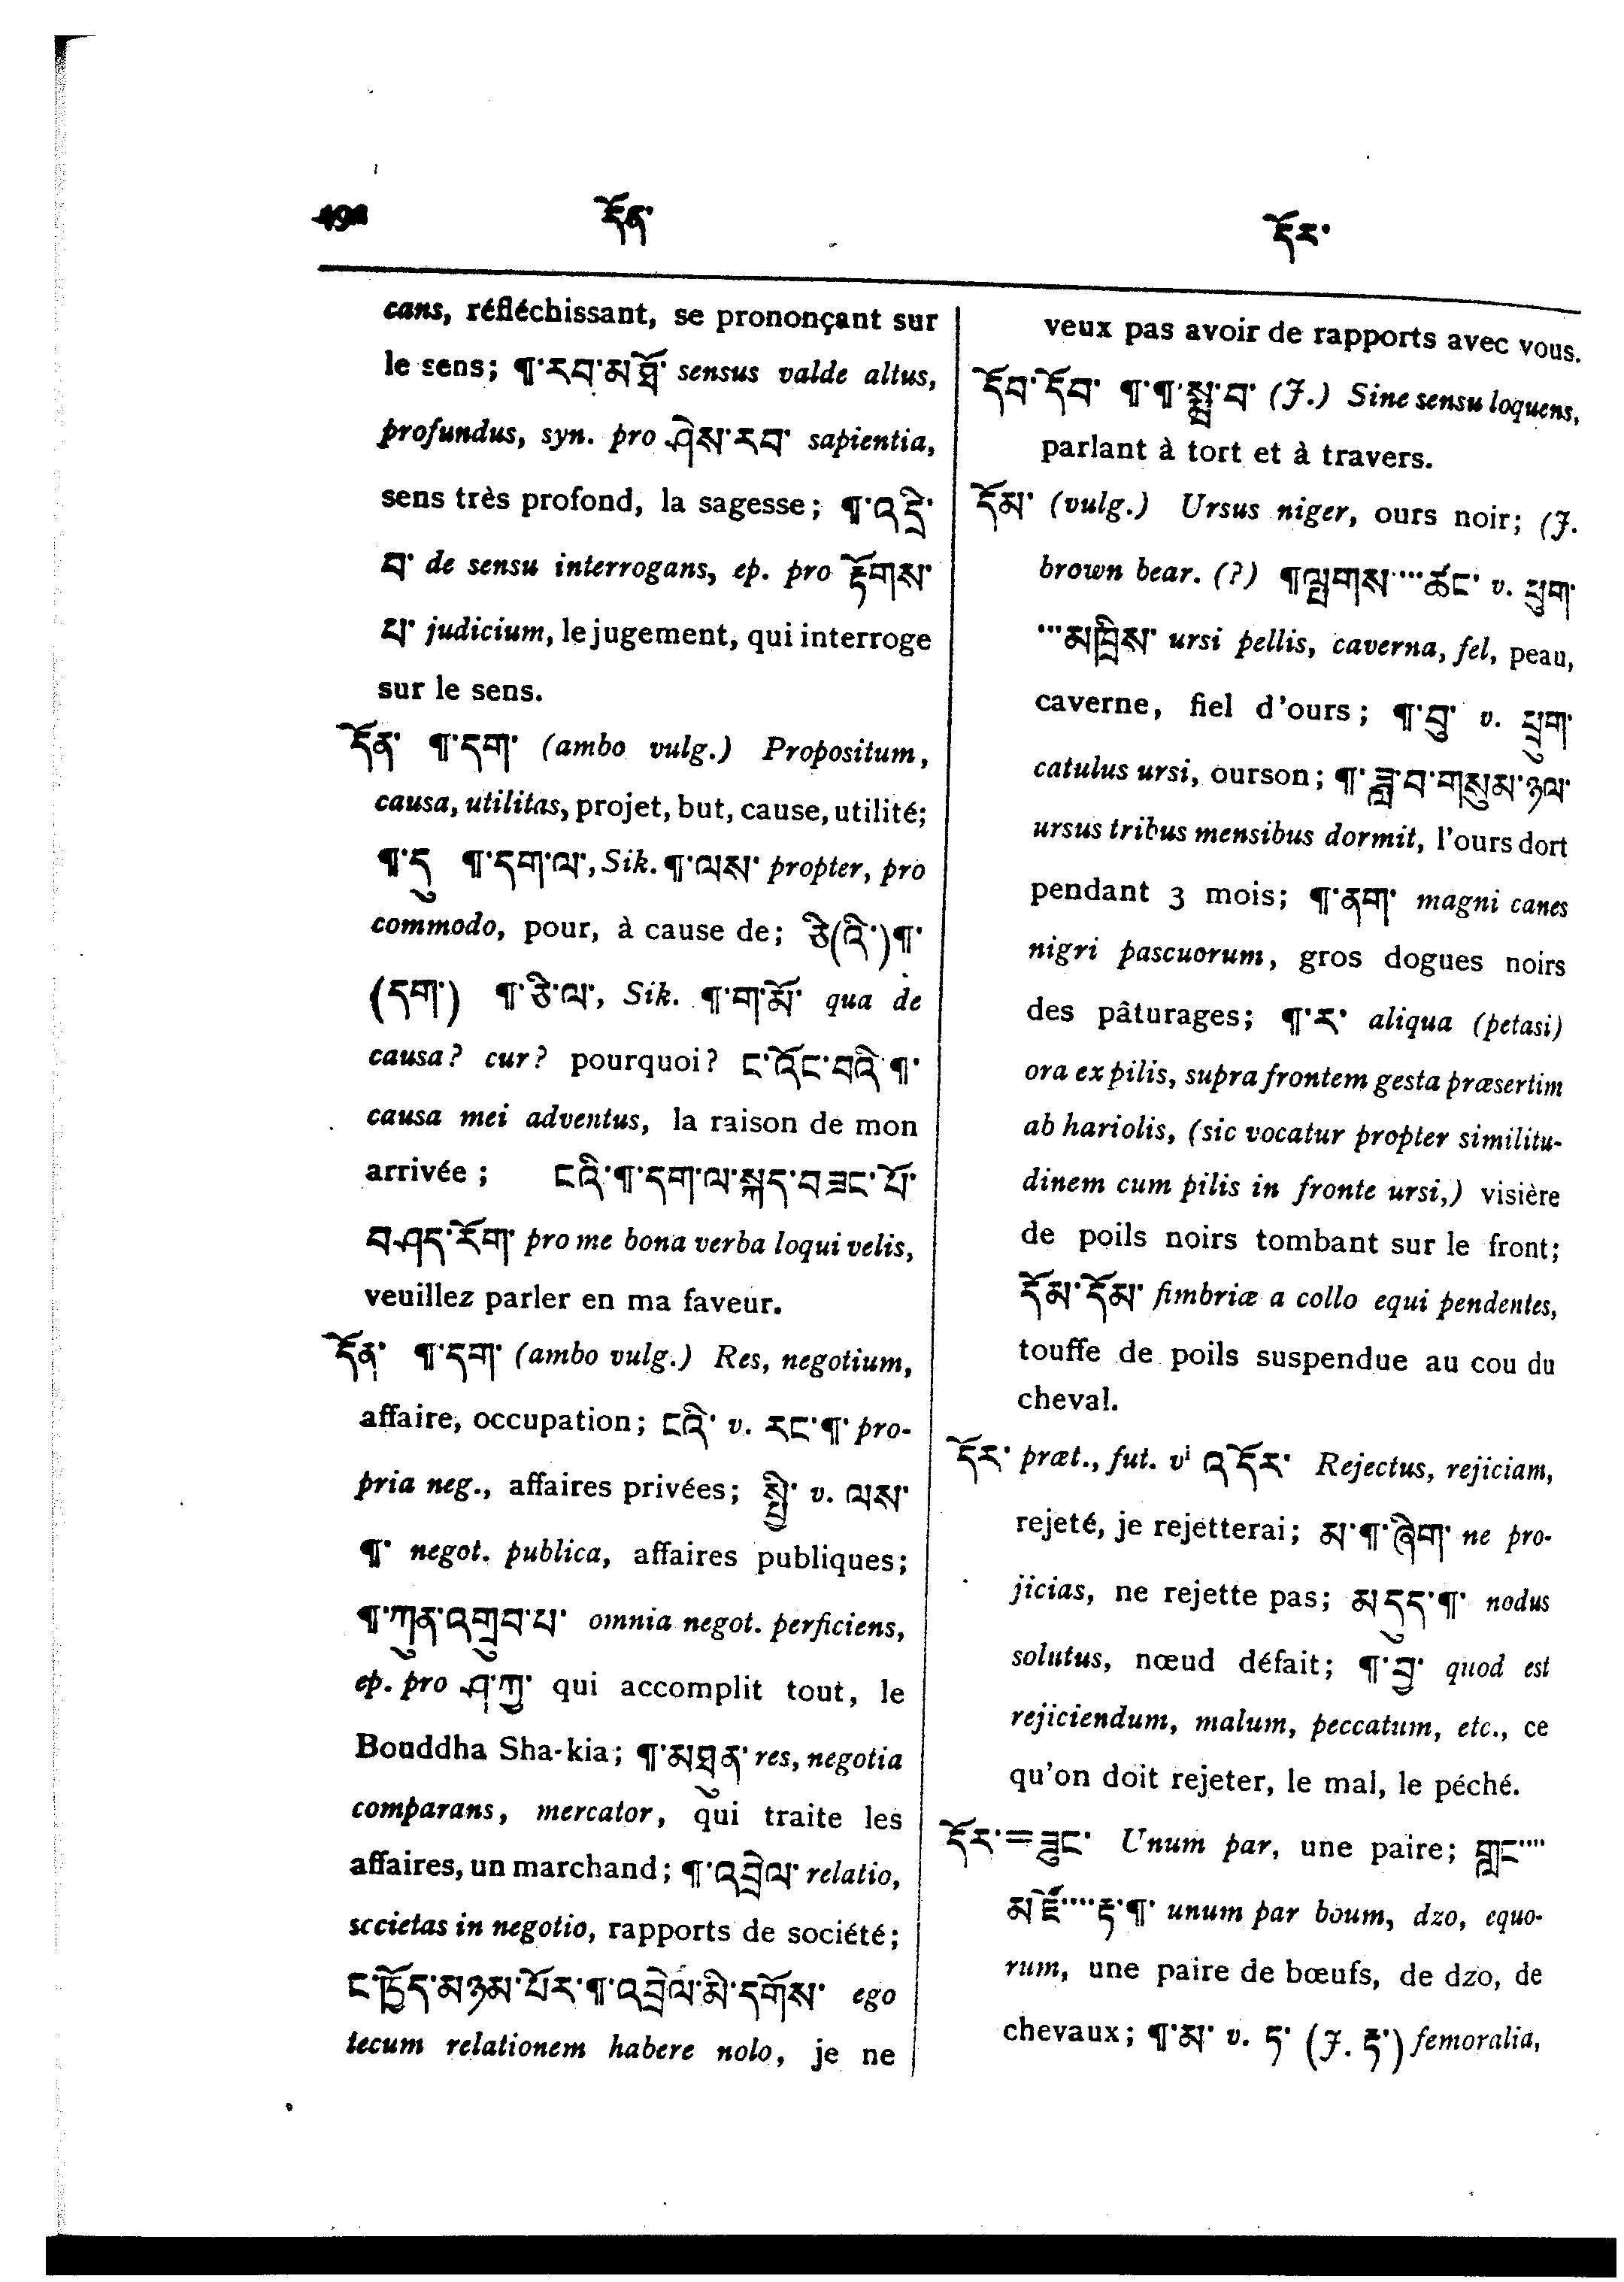 དོན་
དོར་
cans, réfléchissant, se prononçant sur
le sens; ¶་རབ་མཐོ་ sensus valde altus,
profundus, syn. pro ཤེས་རབ་ sapientia,
sens très profond, la sagesse; ¶་འདྲི་
བ་ de sensu interrogans, ep. pro རྟོགས་
པ་ judicium, le jugement, qui interroge
sur le sens.
དོན་ ¶་དག་ (ambo vulg.) Propositum,
causa, utilitas, projet, but, cause, utilité;
¶་དུ ¶་དག་ལ་, Sik. ¶་ལས་ propter, pro
commodo, pour, à cause de; ཅི(འི་)¶་
(དག་) ¶་ཅི་ལ་, Sik. ¶་ག་མོ་ qua de
causa? cur? pourquoi? ང་འོང་བའི་¶་
causa mei adventus, la raison de mon
arrivée; ངའི་¶་དག་ལ་སྐད་བཟང་པོ་
བཤད་རོག་ pro me bona verba loqui velis,
veuillez parler en ma faveur.
དོན་ ¶་དག་ (ambo vulg.) Res, negotium,
affaire, occupation; ངའི་ v. རང་¶་ pro-
pria neg., affaires privées; སྤྱི་ v. ལས་
¶་ negot. publica, affaires publiques;
¶་ཀུན་འགྲུབ་པ་ omnia negot. perficiens,
ep. pro ཤ་ཀྱ་ qui accomplit tout, le
Bouddha Sha-kia; ¶་མཐུན་ res, negotia
comparans, mercator, qui traite les
affaires, un marchand; ¶་འབྲེལ་ relatio,
societas in negotio, rapports de société;
ང་ཁྱོད་མཉམ་པོར་¶་འབྲེལ་མི་དགོས་ ego
tecum relationem habere nolo, je ne
veux pas avoir de rapports avec vous.
དོབ་དོབ་ ¶་¶་སྨྲ་བ་ (J.) Sine sensu loquens,
parlant à tort et à travers.
དོམ་ (vulg.) Ursus niger, ours noir; (J.
brown bear. (?) ¶ལྤགས་···ཚང་ v. ཕུག་
···མཁྲིས་ ursi pellis, caverna, fel, peau,
caverne, fiel d'ours; ¶་བུ་ v. ཕྲུག་
catulus ursi, ourson; ¶་ཟླ་བ་གསུམ་ཉལ་
ursus tribus mensibus dormit, l'ours dort
pendant 3 mois; ¶་ནག་ magni canes
nigri pascuorum, gros dogues noirs
des pâturages; ¶་ར་ aliqua (petasi)
ora ex pilis, supra frontem gesta præsertim
ab hariolis, (sic vocatur propter similitu-
dinem cum pilis in fronte ursi,) visière
de poils noirs tombant sur le front;
དོམ་དོམ་ fimbriæ a collo equi pendentes,
touffe de poils suspendue au cou du
cheval.
དོར་ præt., fut. vⁱ འདོར་ Rejectus, rejiciam,
rejeté, je rejetterai; མ་¶་ཞིག་ ne pro-
jicias, ne rejette pas; མདུད་¶་ nodus
solutus, nœud défait; ¶་བྱ་ quod est
rejiciendum, malum, peccatum, etc., ce
qu'on doit rejeter, le mal, le péché.
དོར་=ཟུང་ Unum par, une paire; གླང་····
མཛོ་····རྟ་¶་ unum par boum, dzo, equo-
rum, une paire de bœufs, de dzo, de
chevaux; ¶་མ་ v. ཏ་ (J. རྟ་) femoralia,